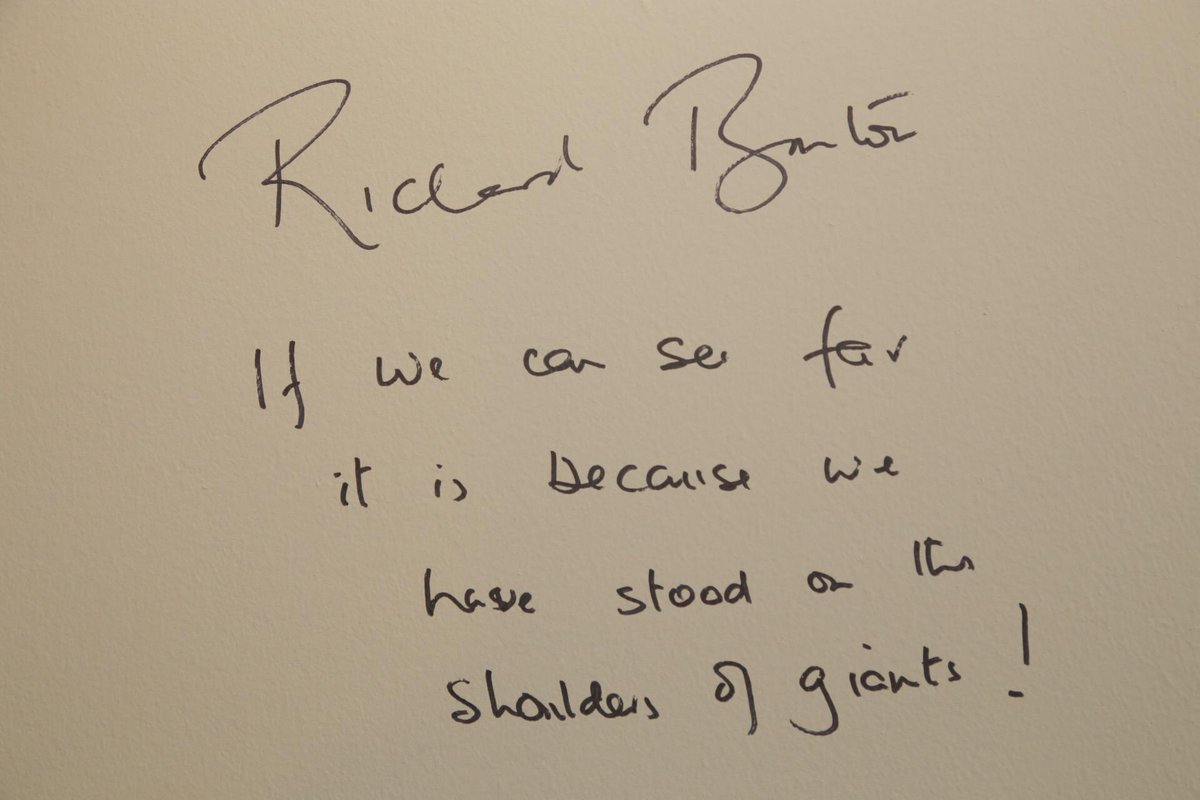 Richard Barton
If we can see far
it is because we
have stood on the
shoulders of giants!